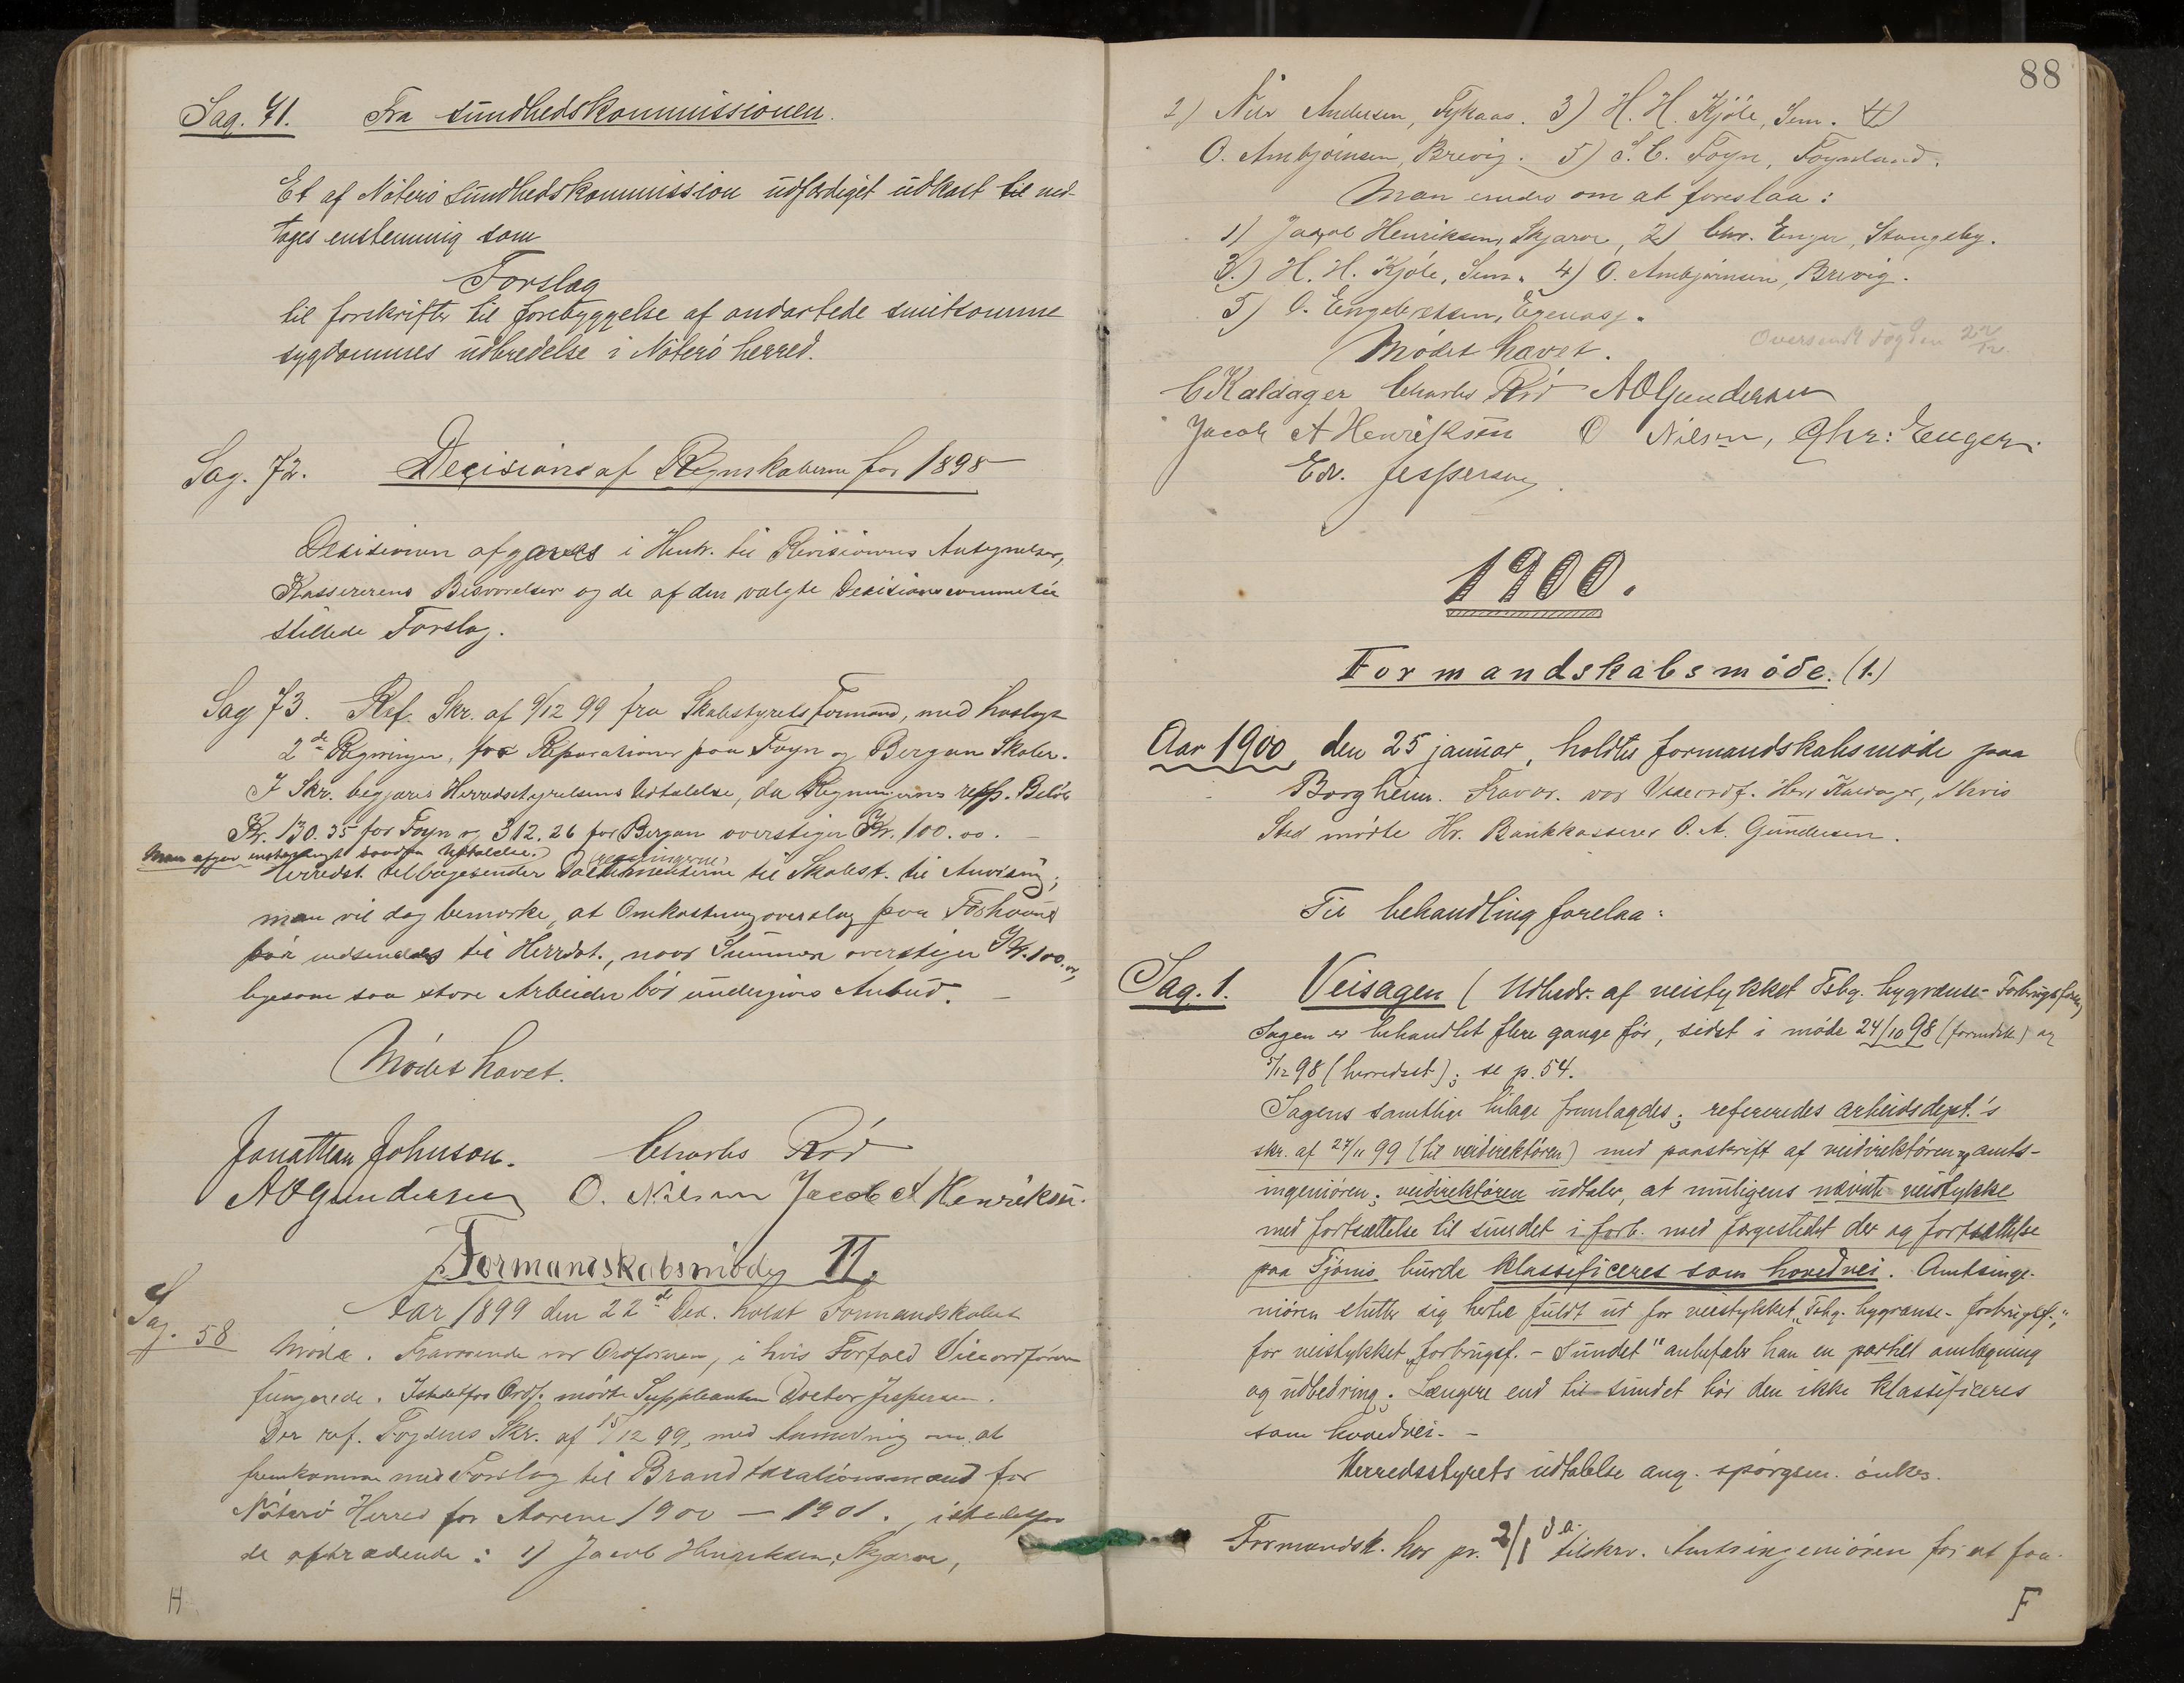 Sag. 71. Fra sundhedskommissionen.
Et af Nøterø sundhedskommission udfærdiget udkast til ved-
tages enstemmig som
Forslag
til forskrifter til forebyggelse af ondartede smitsomme
sygdommes udbredelse i Nøterø herred.
Sag. 72. Decision af Regnskaberne for 1898
Decisionen afgaves i Henh. til Revisionens Antegnelser,
Kassererens Besvarelser og de af den valgte Decisionscommitée
stillede Forslag.
Sag 73. Ref. Skr. af 9/12 99 fra Skolestyrets Formand, med hoslagt
2de Regninger, for Reparationer paa Foyn og Bergan Skoler.
I Skr. begjæres Herredsstyrelsens Udtalelse, da Regningerne resp. Beløb
Kr. 130.35 for Foyn og 312.26 for Bergan overstiger Kr. 100.00. —
Man afgav enstemmigt saadan Udtalelse:
(regningerne)
Herredst. tilbagesender Dokumenterne til Skolest. til Anvisning;
man vil dog bemærke, at Omkostningsoverslag paa Forhaand
paa indsendes til Herredst., naar Summen overstiger Kr. 100.00,
ligesom saa store Arbeider bør undergives Anbud. —
Mødet hævet.
Jonathan Johnson. Charles Rød
A O Gundersen O. Nilsen Jacob A Henriksen.
Formandskabsmøde 11.
Sag. 58
Aar 1899 den 22de Dec. holdt Formandskabet
Møde. Fraværende var Ordføreren, i hvis Forfald Viceordføreren
fungerede. Istedetfor Ordf. mødte Suppleanten Doctor Jespersen.
Der ref. Fogdens Skr. af 15/12 99, med Anmodning om at
fremkomme med Forslag til Brandtaxationsmænd for
Nøterø Herred for Aarene 1900 — 1901, istedetfor
de aftrædende: 1) Jacob Henriksen, Skjærve,
H
88
2) Nils Andersen, Tykaas. 3) H. H. Kjøle, Sem. 4)
O. Ambjørnsen, Brevig. 5) S. C. Foyn, Foynland.
Man enedes om at foreslaa:
1) Jacob Henriksen, Skjærve, 2) Chr. Enger, Stangeby.
3.) H. H. Kjøle, Sem. 4) O. Ambjørnsen, Brevig.
5) O. Engebretsen, Egenæs.
Oversendt Fogden 22/12.
Mødet hævet.
C Kaldager Charles Rød A O Gundersen
Jacob A Henriksen O Nilsen, Chr: Enger.
Edv. Jespersen.
1900.
Formandskabsmøde. (1.)
Aar 1900, den 25 januar, holdtes formandskabsmøde paa
Borgheim. Fravær. var Viceordf. Herr Kaldager, i hvis
Sted mødte Hr. Bankkasserer O. A. Gundersen.
Til behandling forelaa:
Sag. 1. Veisagen (Udbedr. af veistykket Tsbg. bygrænse - Forbrugsforen.)
Sagen er behandlet flere gange før, sidst i møde 24/10 98 (formdsk.) og
5/12 98 (herredsst.); se p. 54.
Sagens samtlige bilage fremlagdes; refereredes arbeidsdept.'s
skr. af 27/11 99 (til veidirektøren) med paaskrift af veidirektøren og amts-
ingeniøren; veidirektøren udtaler, at muligens nævnte veistykke
med fortsættelse til sundet i forb. med færgestedet der og fortsættelse
paa Tjømø burde klassificeres som hovedvei. Amtsinge-
niøren slutter sig hertil fuldt ud for veistykket „Tsbg. bygrænse - forbrugsf.";
for veistykket „forbrugsf. - Sundet" anbefaler han en partiel omlægning
og udbedring; Længere end til sundet bør den ikke klassificeres
som hovedvei. -
Herredsstyrets udtalelse ang. spørgsm. ønkes.
Formandsk. har pr. 2/1 d.a. tilskrv. Amtsingeniøren for at faa
F